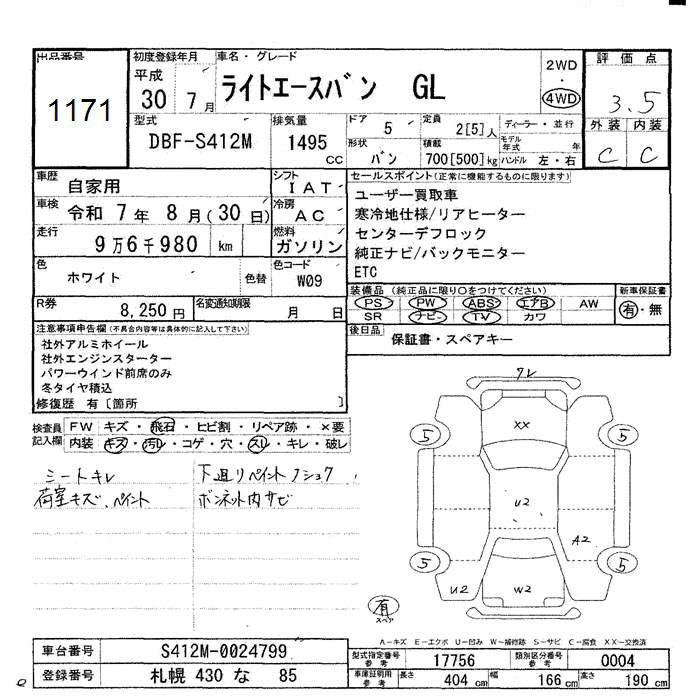 出品番号
1171
初度登録年月
平成
30年7月
車名・グレード
ライトエースバン GL
2WD
・
4WD
評価点
3.5
外装 内装
C C
型式
DBF-S412M
排気量
1495
CC
ドア
5
定員
2[5]人
形状
バン
積載
700[500]kg
ディーラー・並行
モデル年式 年
ハンドル 左・右
車歴
自家用
シフト
IAT
車検
令和 7年 8月(30日)
冷房
AC
走行
9万6千980 km
燃料
ガソリン
色
ホワイト
色替
色コード
W09
R券
8,250円
名変通知期限
月 日
セールスポイント(正常に機能するものに限ります)
ユーザー買取車
寒冷地仕様/リアヒーター
センターデフロック
純正ナビ/バックモニター
ETC
装備品(純正品に限り○をつけてください)
PS PW ABS エアB AW
SR ナビ TV カワ
新車保証書
有・無
後日品
保証書・スペアキー
注意事項申告欄(不具合内容等は具体的に記入して下さい)
社外アルミホイール
社外エンジンスターター
パワーウインド前席のみ
冬タイヤ積込
修復歴 有〔箇所 〕
検査員記入欄
FW キズ・飛石・ヒビ割・リペア跡・×要
内装 キズ・汚レ・コゲ・穴・スレ・キレ・破レ
シートキレ
荷室キズ、ペイント
下廻りペイントノシュク
ボンネット内サビ
ワレ
XX
5
5
U2
A2
5
5
U2
W2
有
スペア
A-キズ E-エクボ U-凹み W-補修跡 S-サビ C-腐食 XX-交換済
車台番号
S412M-0024799
登録番号
札幌 430 な 85
型式指定番号
参考
17756
類別区分番号
参考
0004
車庫証明用
参考
長さ
404 cm
幅
166 cm
高さ
190 cm